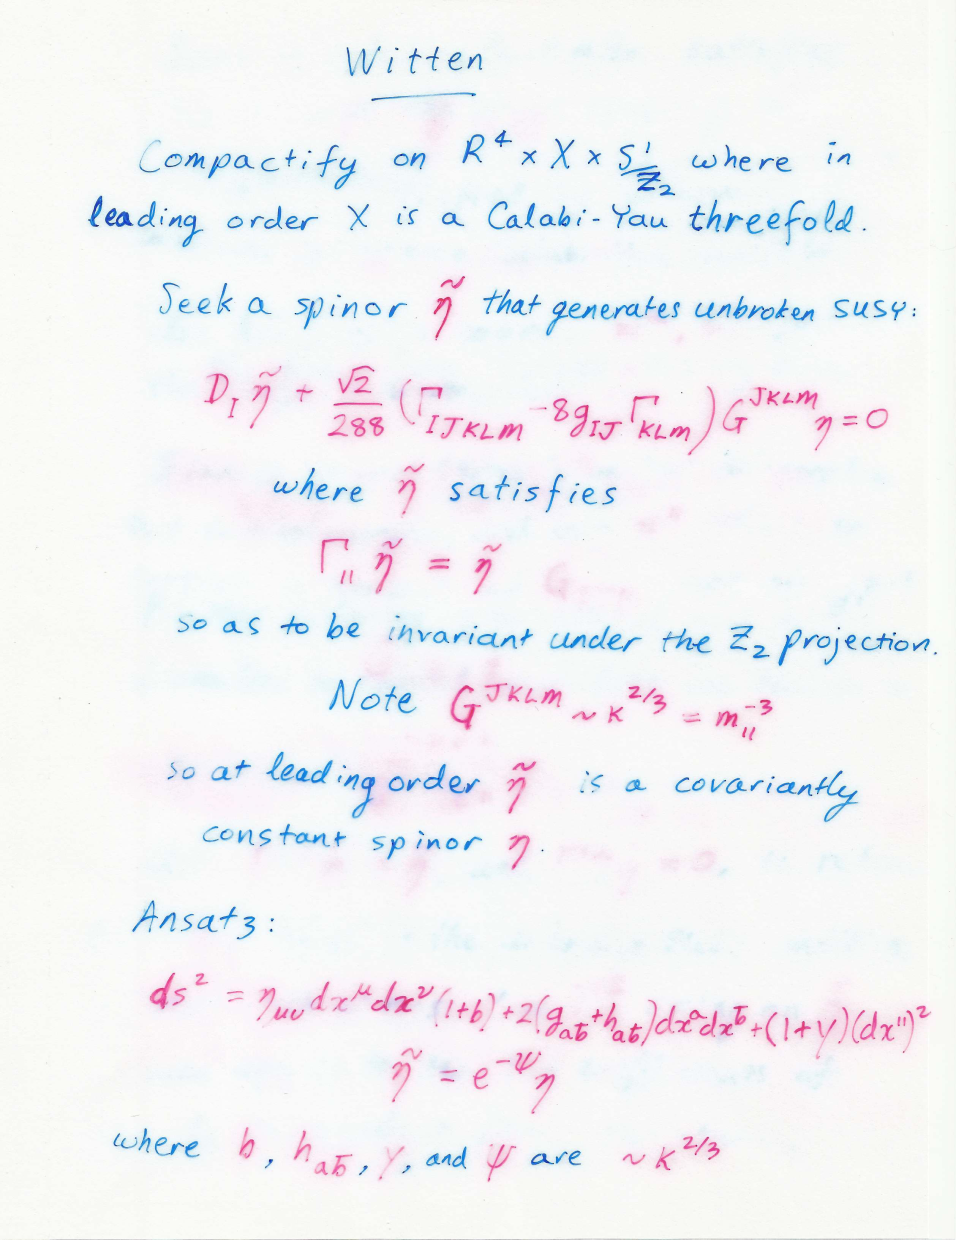 Witten
Compactify on R⁴ × X × S¹/Z₂ where in
leading order X is a Calabi-Yau threefold.
Seek a spinor η̃ that generates unbroken SUSY:
D_I η̃ + √2/288 (Γ_IJKLM - 8g_IJ Γ_KLM) G^JKLM η = 0
where η̃ satisfies
Γ₁₁ η̃ = η̃
so as to be invariant under the Z₂ projection.
Note G^JKLM ~ κ^2/3 = m₁₁⁻³
so at leading order η̃ is a covariantly
constant spinor η.
Ansatz:
ds² = η_μν dx^μ dx^ν (1+b) + 2(g_ab̄ + h_ab̄) dx^a dx^b̄ + (1+γ)(dx¹¹)²
η̃ = e^-ψ η
where b, h_ab̄, γ, and ψ are ~ κ^2/3